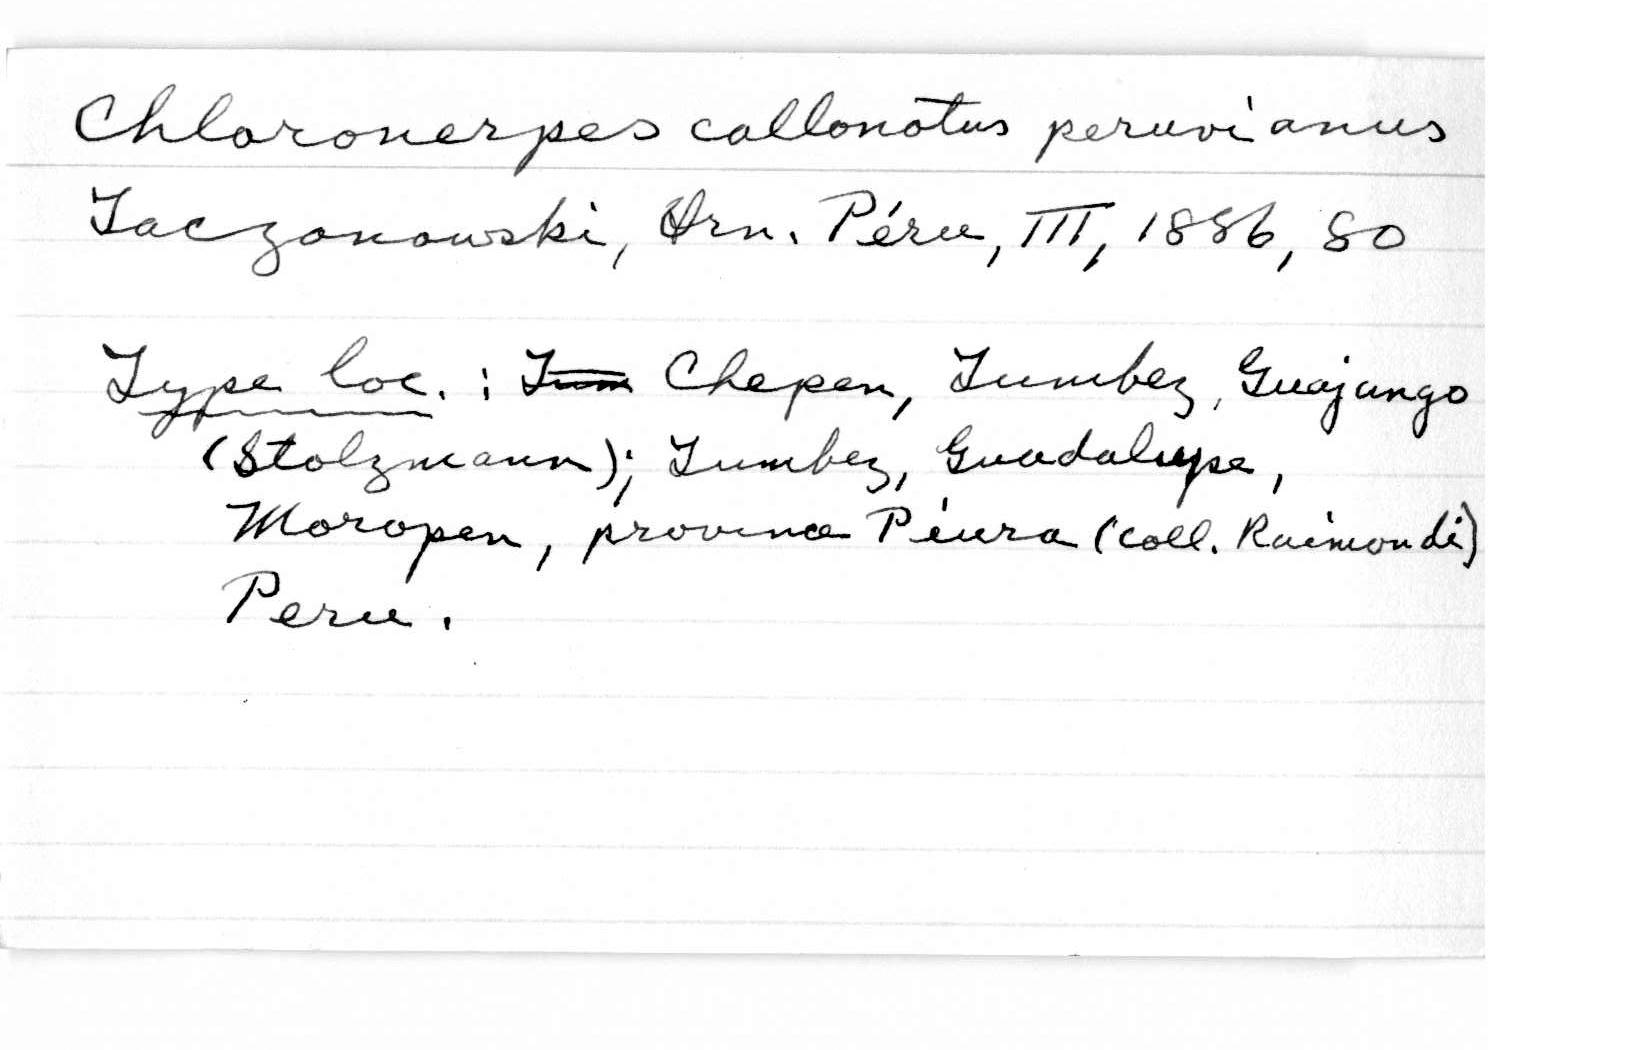 Chloronerpes callonotus peruvianus
Taczanowski, Orn. Péru, III, 1886, 80
Type loc. : Tum Chepen, Tumbez, Guajango
(Stolzmann); Tumbez, Guadalupe,
Moropen, province Piura (coll. Raimondi)
Peru.